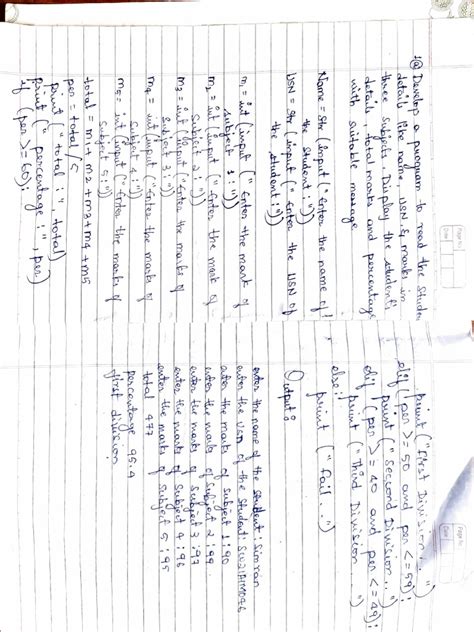 1a) Develop a program to read the student
details like name, USN, & marks in
three subjects. Display the student's
details, total marks and percentage
with suitable message
Name = str (input ("Enter the name of
the student:"))
USN = str (input ("Enter the USN of
the student:"))
m1 = int (input ("Enter the mark of
subject 1:"))
m2 = int (input ("Enter the mark of
subject 2:"))
m3 = int (input ("Enter the marks of
subject 3:"))
m4 = int (input ("Enter the marks of
subject 4:"))
m5 = int (input ("Enter the marks of
subject 5:"))
total = m1 + m2 + m3 + m4 + m5
per = total / 5
print ("total:", total)
print ("percentage:", per)
if (per >= 60):
print ("First Division..")
elif (per >= 50 and per <= 59):
print ("Second Division..")
elif (per >= 40 and per <= 49):
print ("Third Division..")
else:
print ("fail..")
Output:
enter the name of the student: Simran
enter the USN of the student:
enter the mark of subject 1: 90
enter the marks of subject 2: 99
enter the marks of subject 3: 97
enter the marks of subject 4: 96
enter the marks of subject 5: 95
total 477
percentage 95.4
first division